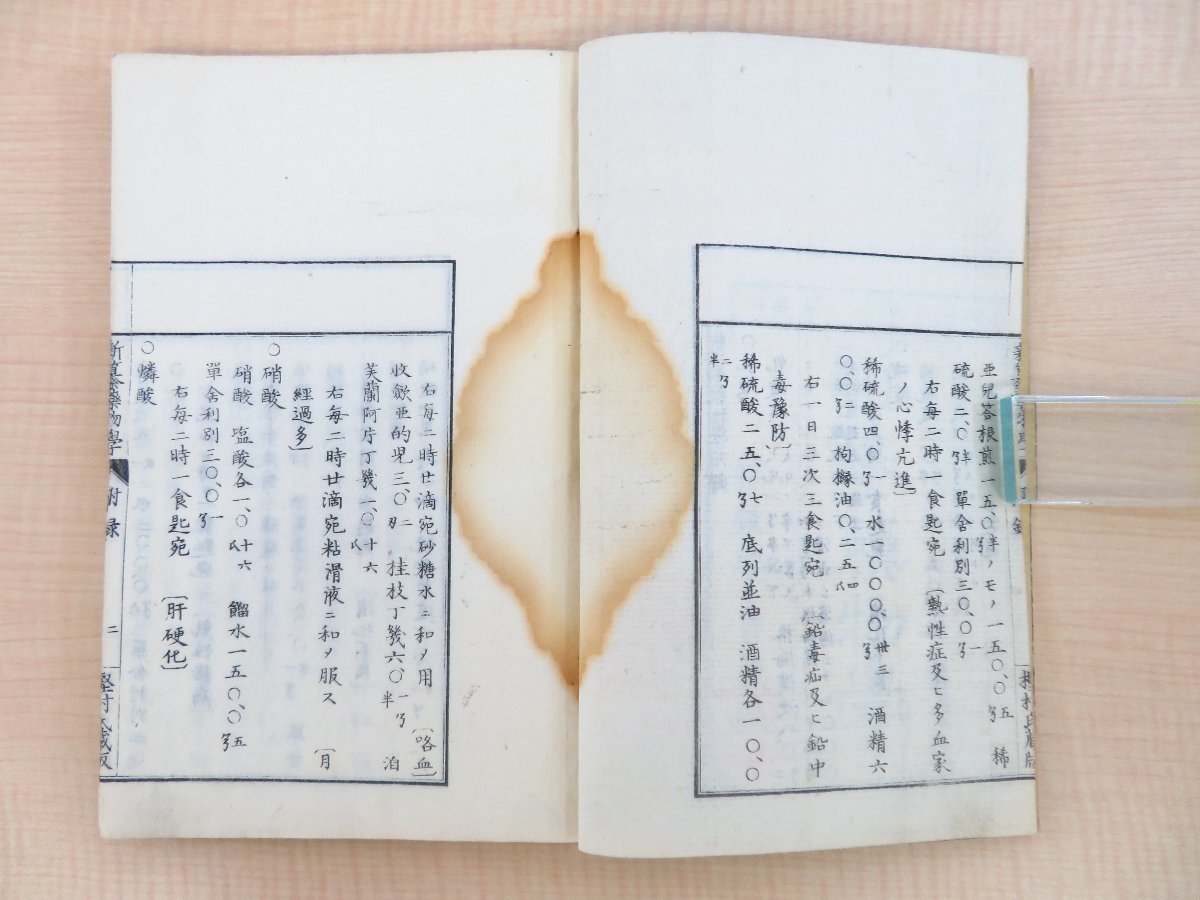 亜兒答根煎一五〇、〇半ノモノ一五〇、〇五 稀
硫酸二、〇半 單舎利別三〇、〇一
右每二時一食匙宛 〔熱性症及ヒ多血家
ノ心悸亢進〕
稀硫酸四、〇一 水一〇〇〇、〇卅三 酒精六
〇、〇二 拘櫞油〇、二五四
右一日三次三食匙宛 〔鉛毒疝及ヒ鉛中
毒豫防〕
稀硫酸二五、〇七 底列並油 酒精各一〇、〇
二半
右每二時廿滴宛砂糖水ニ和ノ用 〔咯血〕
收歛亜的児三〇、二 桂枝丁幾六〇、一半 泊
芙蘭阿片丁幾一、〇十六
右每二時廿滴宛粘滑液ニ和ノ服ス 〔月
經過多〕
〇硝酸
硝酸 塩酸各一、〇十六 餾水一五〇、〇五
單舎利別三〇、〇一
右每二時一食匙宛 〔肝硬化〕
〇燐酸
藥物學 附录 二